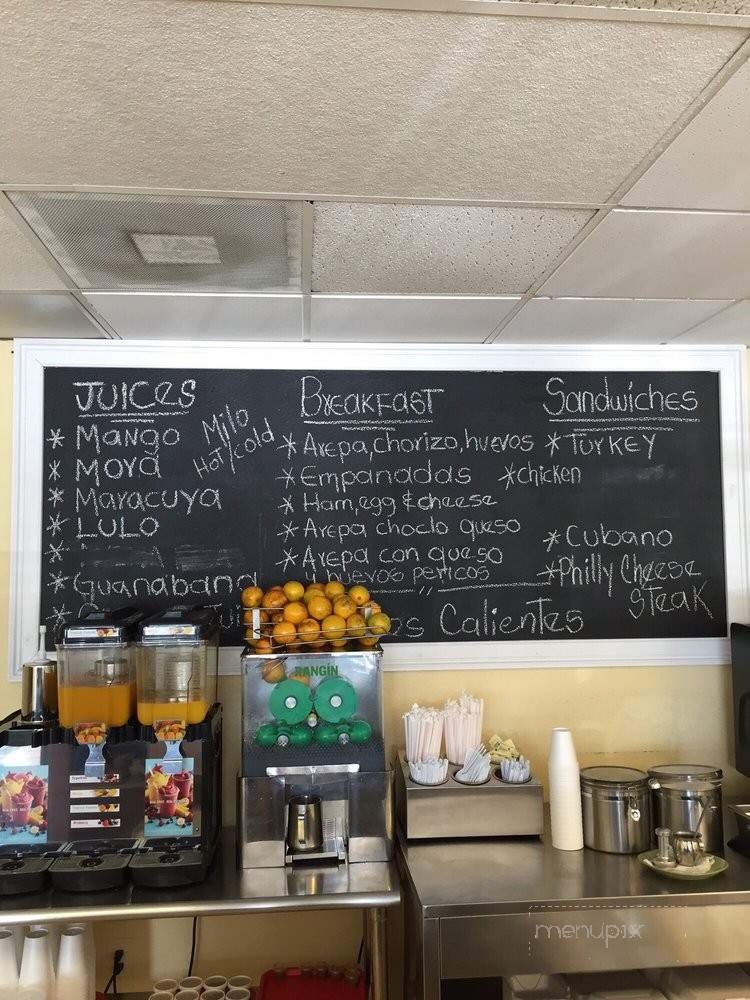 JUICES
* Mango
* Mora
* Maracuya
* LULO
*
* Guanabana
*
Milo
Hot/cold
Breakfast
* Arepa, chorizo, huevos
* Empanadas
* Ham, egg & cheese
* Arepa choclo queso
* Arepa con queso
y huevos pericos
Calientes
Sandwiches
* TURKEY
* chicken
* Cubano
* Philly Cheese
Steak
RANGIN
menupix